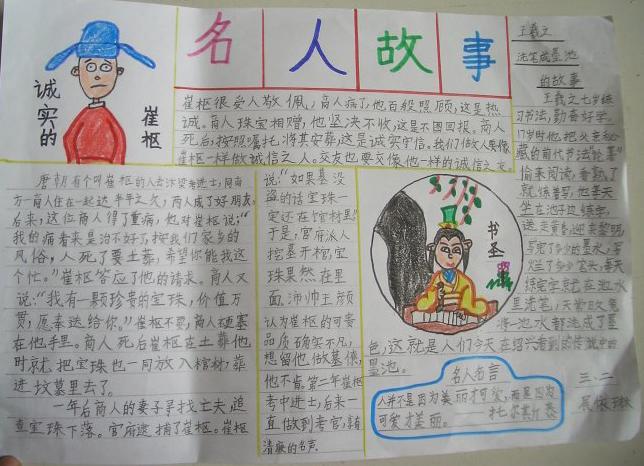 名人故事
诚实的
崔枢
崔枢很受人敬佩，商人病了，他百般照顾，这是热
诚。商人珠宝相赠，他坚决不收，这是不图回报。商人
死后，按照嘱托，将其安葬，这是诚实守信。我们做人要像
崔枢一样做诚信之人。交友也要交像他一样的诚信之友
唐朝有个叫崔枢的人去汴梁考进士，同南
方一商人住在一起达半年之久，两人成了好朋友。
后来，这位商人得了重病，他对崔枢说：“
我的病看来是治不好了，按我们家乡的
风俗，人死了要土葬，希望你能我这
个忙。”崔枢答应了他的请求。商人又
说：“我有一颗珍贵的宝珠，价值万
贯，愿奉送给你。”崔枢不要，商人硬塞
在他手里。商人死后崔枢在土葬他
时就把宝珠也一同放入棺材，葬
进坟墓里去了。
一年后商人的妻子寻找亡夫，追
查宝珠下落。官府逮捕了崔枢。崔枢
说：“如果墓没
盗的话宝珠一
定还在棺材里”
于是，官府派人
挖墓开棺，宝
珠果然在里
面。沛帅王彦
认为崔枢的可贵
品质确实不凡，
想留他做幕僚，
他不肯。第二年崔枢
考中进士，后来一
直做到考官，
清廉的名声。
王羲之
洗笔成墨池
的故事
王羲之七岁练
习书法，勤奋好学。
17岁时他把父亲
藏的前代书法
偷来阅读，看熟了
就练着写，他每天
坐在池子边练字，
送走黄昏，迎来黎明，
写完了多少的墨水，
烂了多少笔头，每天
练完字就在池水
里洗笔，天长日久竟
将一池水都洗成了墨
色，这就是人们今天在绍兴看到的传说中的
墨池。
书圣
名人名言
人并不是因为美丽才可爱，而是因为
可爱才美丽。
托尔斯泰
三.二